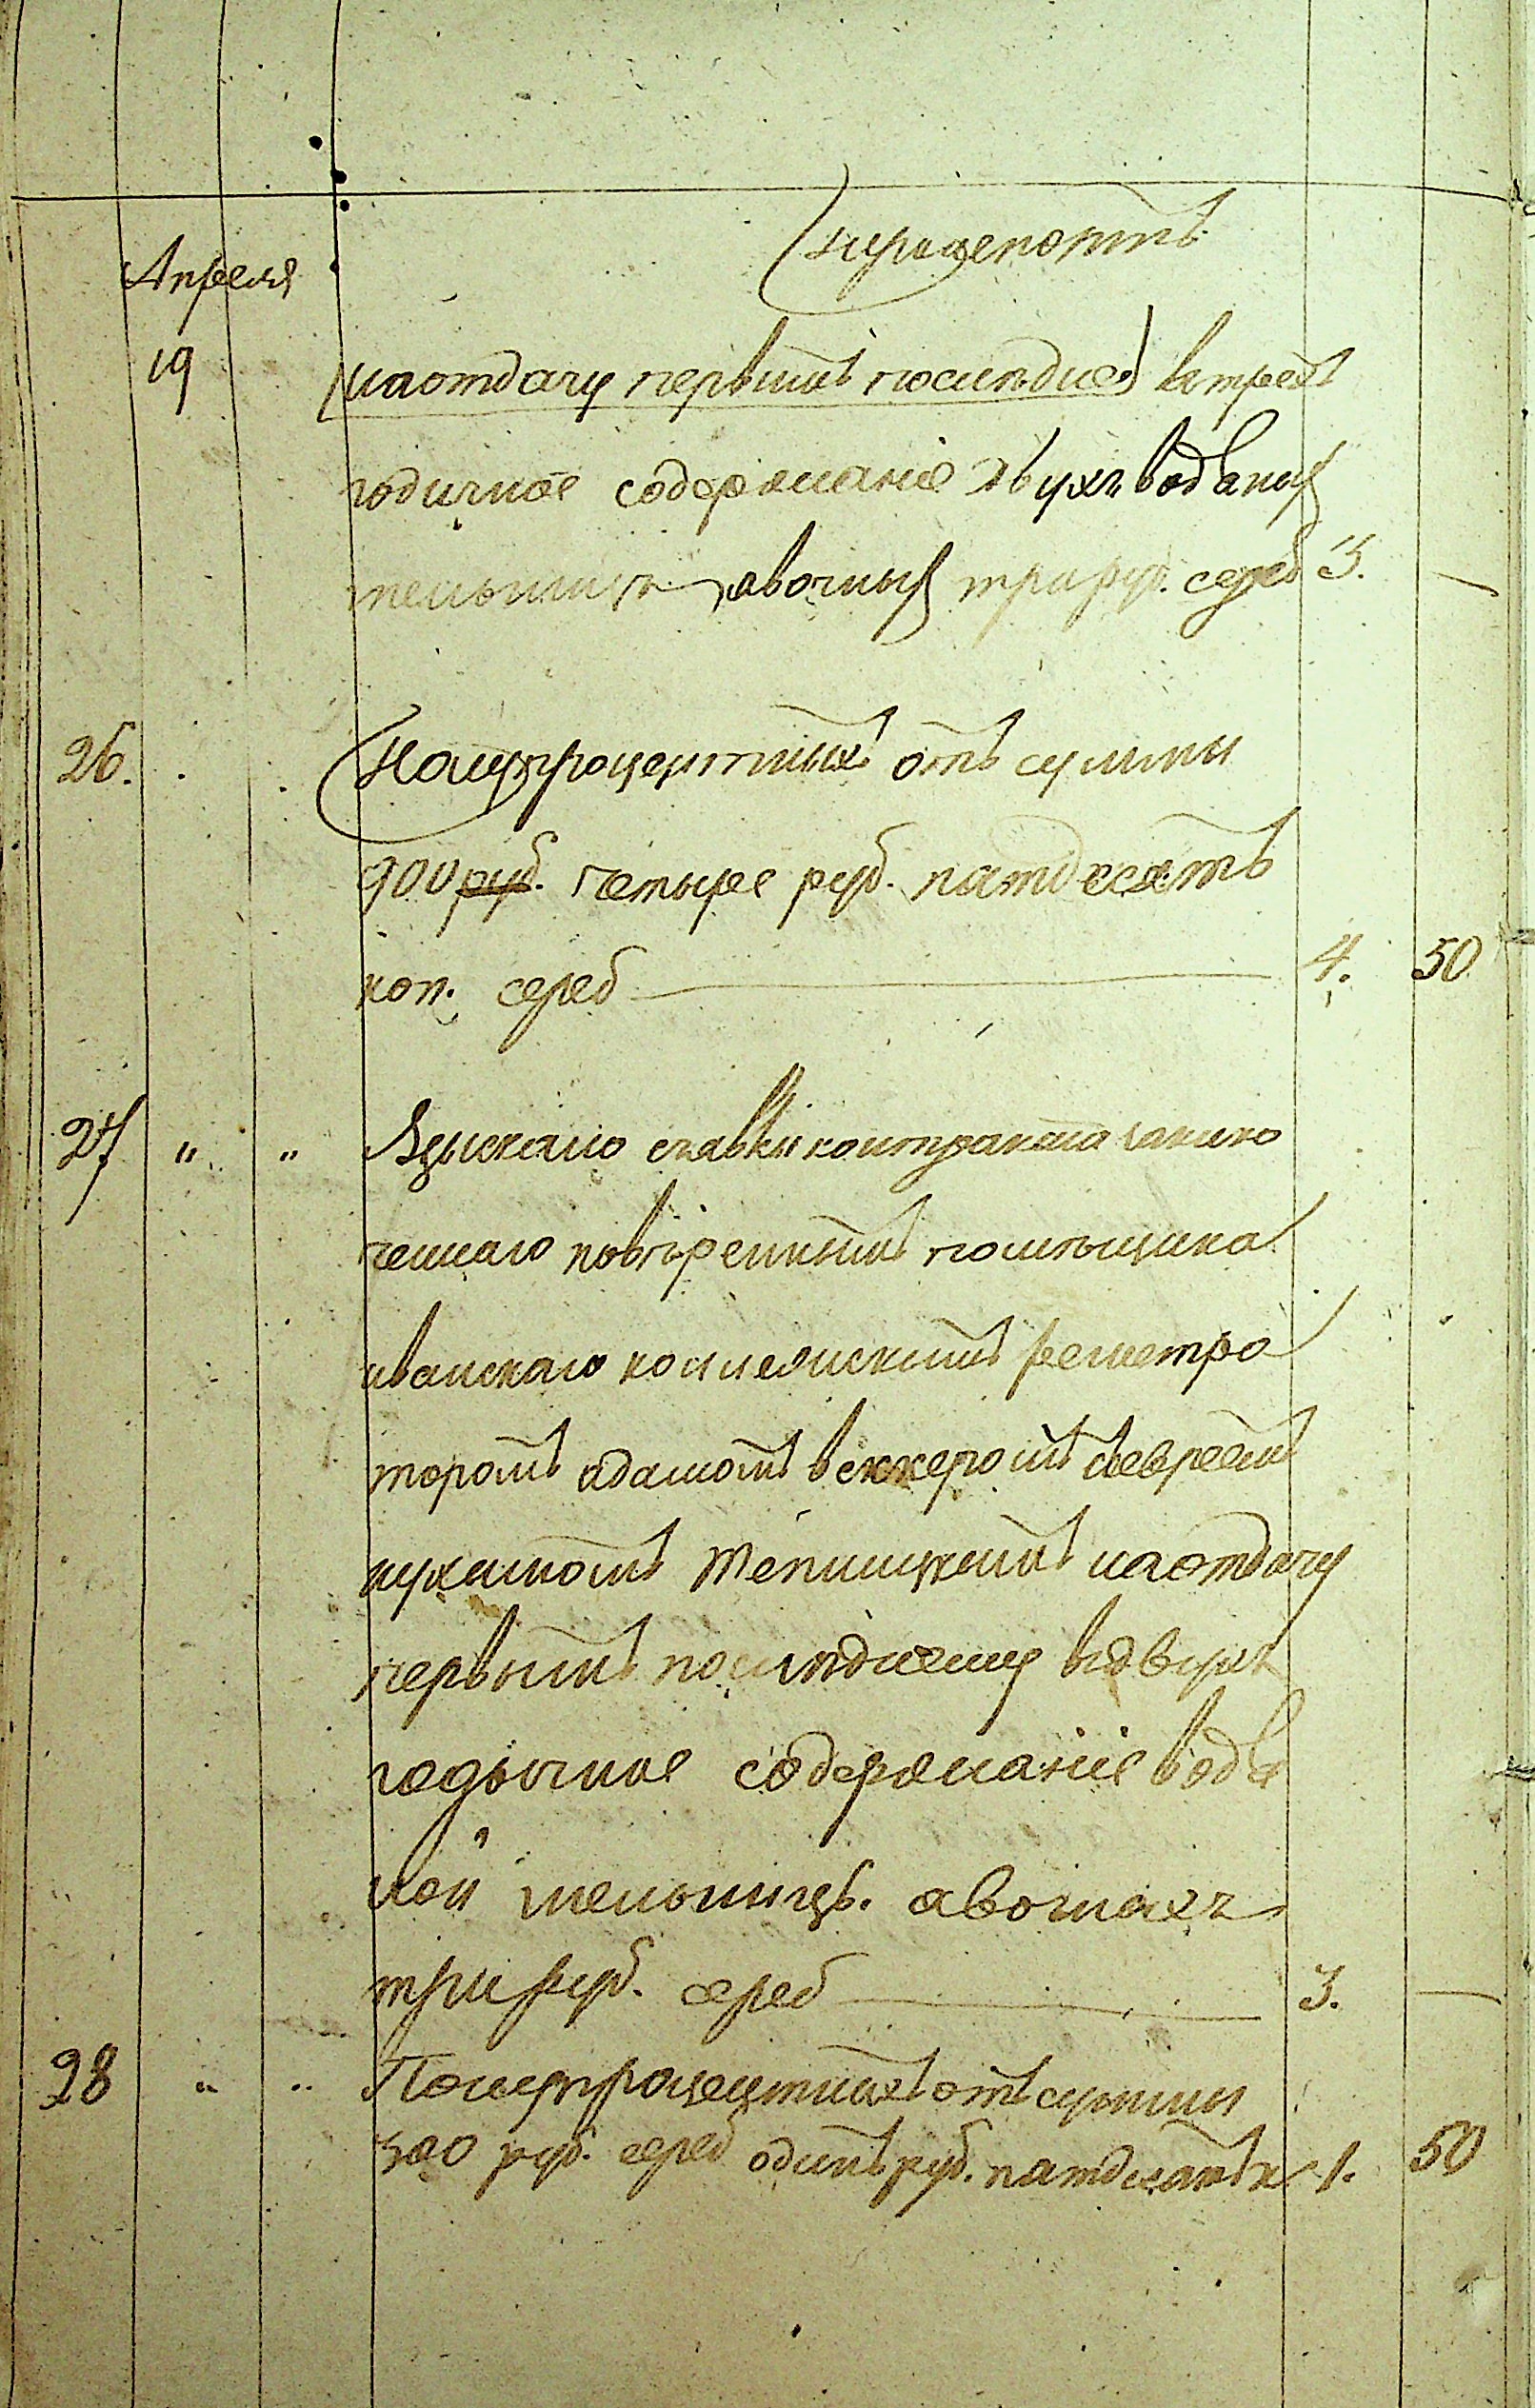 Апреля
19
(наотдачу первымъ последне) втрехъ
годичное содержаніе двухъ водяныхъ
мельницъ авочныхъ три руб. сереб 3. —
26. Полупроцентныхъ отъ суммы
900 руб. четыре руб. пятдесятъ
коп. сереб — 4. 50
27 " " Взыскано съявки контракта заклю
ченнаго повѣреннымъ помѣщика
иванскаго коллежскимъ регистра
торомъ адамомъ съевреемъ
наотдачу
первымъ последнему въдвухъ
годычное содержаніе водя
ной мельницѣ. авочнахъ
три руб. сереб — 3. —
28 " " Полупроцентныхъ отъ суммы
300 руб. сереб одинъ руб. пятдесятъ к 1. 50